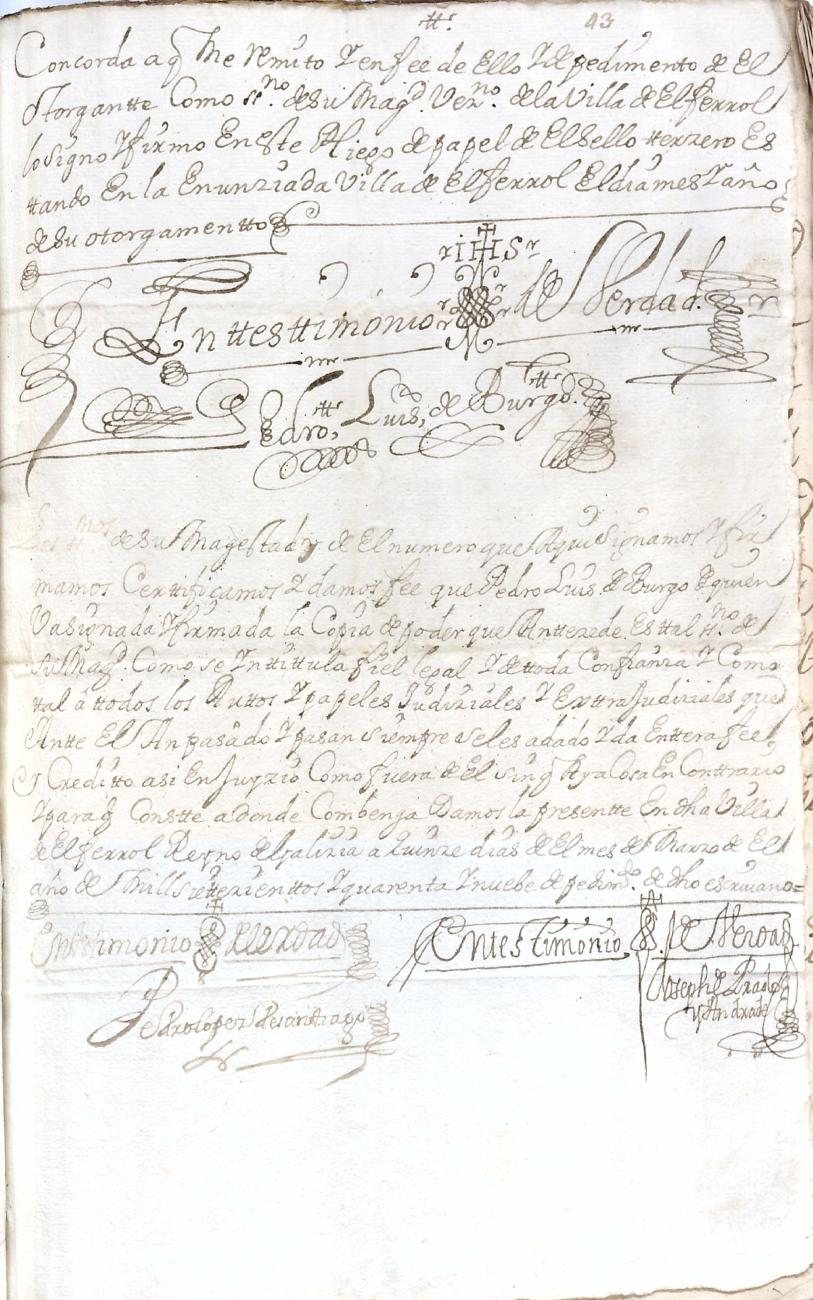 43
Concorda a q Me Remito Y en fee de Ello Y de pedimento de El
Otorgantte Como ss.no de Su Magd. Vezno. de la Villa de El ferrol
lo Signo Y firmo En este Pliego de papel de El Sello tterzero Es
ttando En la Enunziada Villa de El ferrol El dia mes Y año
de Su otorgamentto
IHS
En ttesttimonio de Verdad
Pedro, Luis, de Burgo.
Los ss.nos de Su Magestad y de El numero que Aqui Signamos Y fir
mamos Certtificamos Y damos fee que Pedro Luis de Burgo de quien
Va signada Y firmada la Copia de poder que Anttezede Es ttal ss.no de
Su Magd. Como se Ynttittula fiel legal Y de ttoda Confianza Y Como
ttal a ttodos los Auttos Y papeles Judiziales Y Exttrajudiziales que
Antte El An pasado Y pasan siempre se les a dado Y da Enttera fee
y Creditto asi En Juyzio Como fuera de El sin q Aya Cosa En Conttrario
Y para q Constte a donde Combenga Damos la presentte En dha Villa
de El ferrol Reyno de Galizia a Quinze dias de El mes de Marzo de El
año de Mill settezienttos Y quarenta Y nuebe de pedimto. de dho escrivano=
En testimonio de Verdad
En testimonio, de Verdad
Pedro lopez de santiago
Joseph de Prado
y Andrade